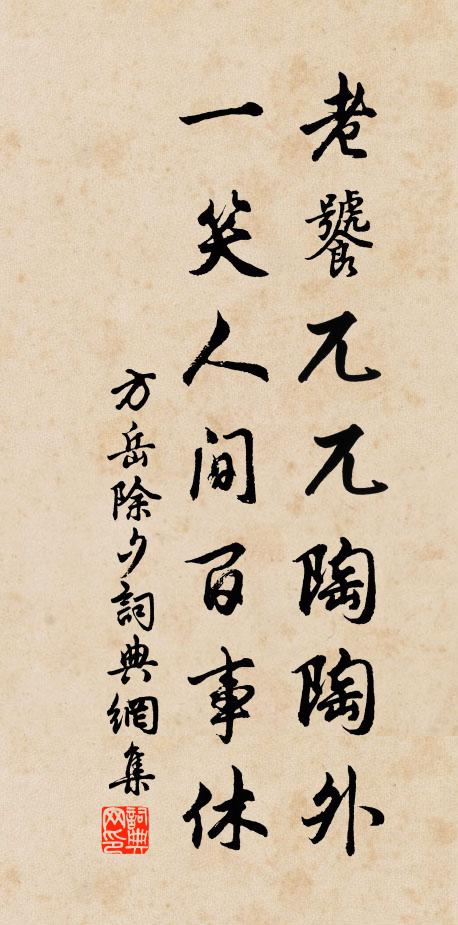 老饕兀兀陶陶外
一笑人间百事休
方岳除夕詞典網集
詞典网印